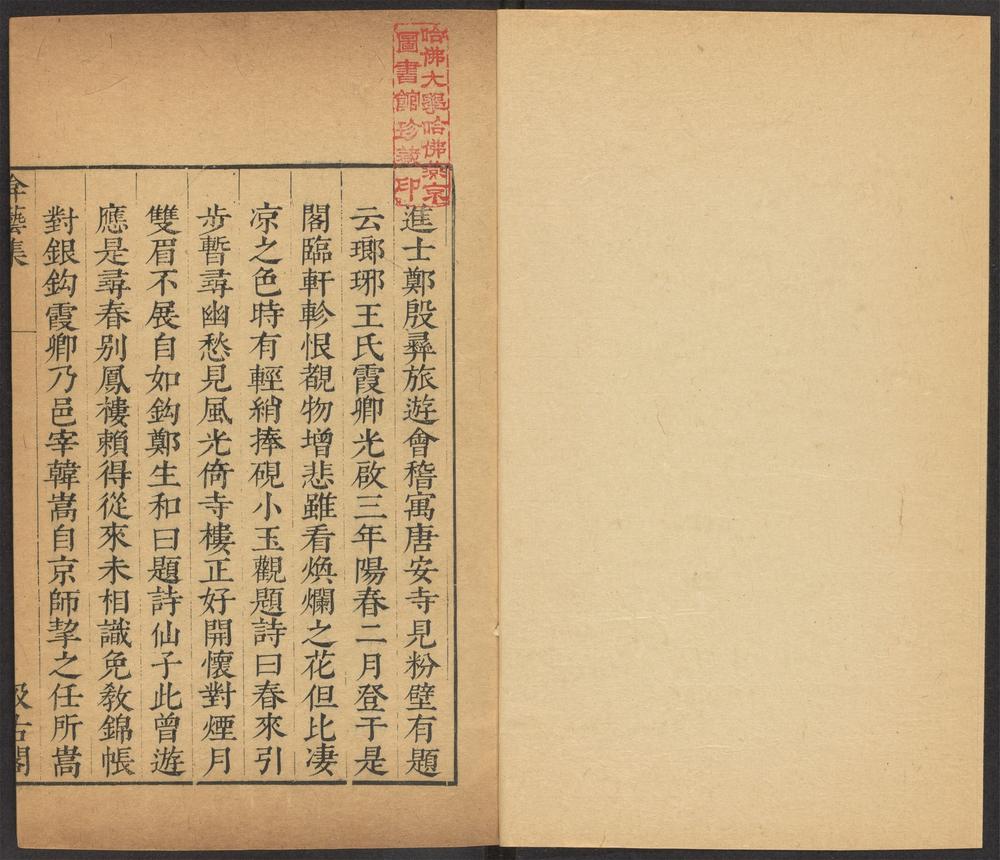 哈佛大學哈佛燕京
圖書館珍藏印
進士鄭殷彞旅遊會稽寓唐安寺見粉壁有題
云瑯琊王氏霞卿光啟三年陽春二月登于是
閣臨軒軫恨覩物增悲雖看煥爛之花但比凄
凉之色時有輕綃捧硯小玉觀題詩曰春來引
步暫尋幽愁見風光倚寺樓正好開懷對煙月
雙眉不展自如鈎鄭生和曰題詩仙子此曾遊
應是尋春别鳳褸賴得從來未相識免敎錦帳
對銀鈎霞卿乃邑宰韓嵩自京師挈之任所嵩
集
汲古閣